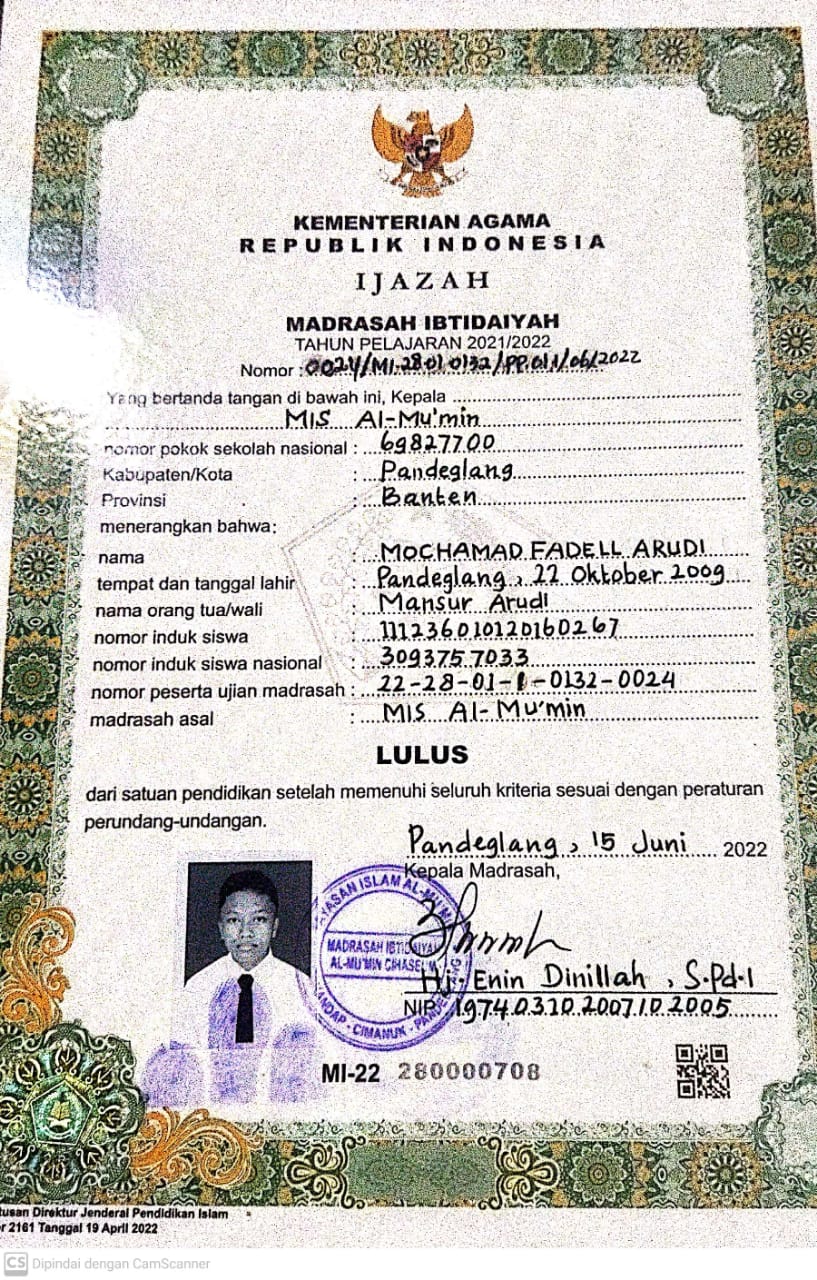 KEMENTERIAN AGAMA
REPUBLIK INDONESIA
IJAZAH
MADRASAH IBTIDAIYAH
TAHUN PELAJARAN 2021/2022
Nomor : 0024/MI.28.01.0132/PP.01.1/06/2022
Yang bertanda tangan di bawah ini, Kepala
MIS Al-Mu'min
nomor pokok sekolah nasional : 69827700
Kabupaten/Kota : Pandeglang
Provinsi : Banten
menerangkan bahwa:
nama : MOCHAMAD FADELL ARUDI
tempat dan tanggal lahir : Pandeglang, 22 Oktober 2009
nama orang tua/wali : Mansur Arudi
nomor induk siswa : 111236010120160267
nomor induk siswa nasional : 3093757033
nomor peserta ujian madrasah : 22-28-01-1-0132-0024
madrasah asal : MIS Al-Mu'min
LULUS
dari satuan pendidikan setelah memenuhi seluruh kriteria sesuai dengan peraturan
perundang-undangan.
Pandeglang, 15 Juni 2022
Kepala Madrasah,
YASAN ISLAM AL-MU'M
MADRASAH IBTIDAIYAH
AL-MU'MIN CIHASEUM
CIMANUK - PANDEGLANG
Hj. Enin Dinillah, S.Pd.I
NIP. 1974.03.10.2007.10.2005
MI-22 280000708
tusan Direktur Jenderal Pendidikan Islam
r 2161 Tanggal 19 April 2022
CS Dipindai dengan CamScanner